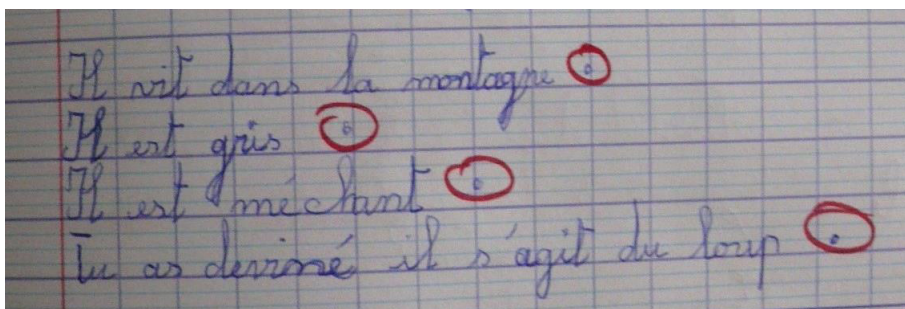 Il vit dans la montagne.
Il est gris.
Il est méchant.
Tu as deviné il s'agit du loup.